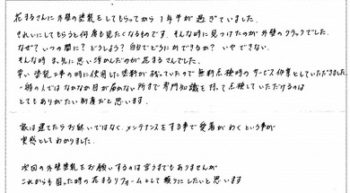 花まるさんに外壁の塗装をしてもらってから1年半が過ぎていました。
きれいにしてもらうと何度も見たくなるものです。そんな時に見つけたのが外壁のクラックでした。
なぜ?いつの間に?どうしよう?自分でどうにかできるか?いやできない。
そんな時、真っ先に思い浮かんだのが花まるさんでした。
幸い塗装工事の時に使用した塗料が残っていたので無料点検時のサービス作業としていただきました。
一般の人ではなかなか目が届かない所まで専門知識を持って点検していただけるのは
とてもありがたい制度だと思います。
家は建てたらお終いではなく、メンテナンスをする事で愛着がわくという事が
実感としてわかりました。
次回の外壁塗装をお願いするのは言うまでもありませんが
これからも困った時の花まるリフォームとして頼りにしたいと思います